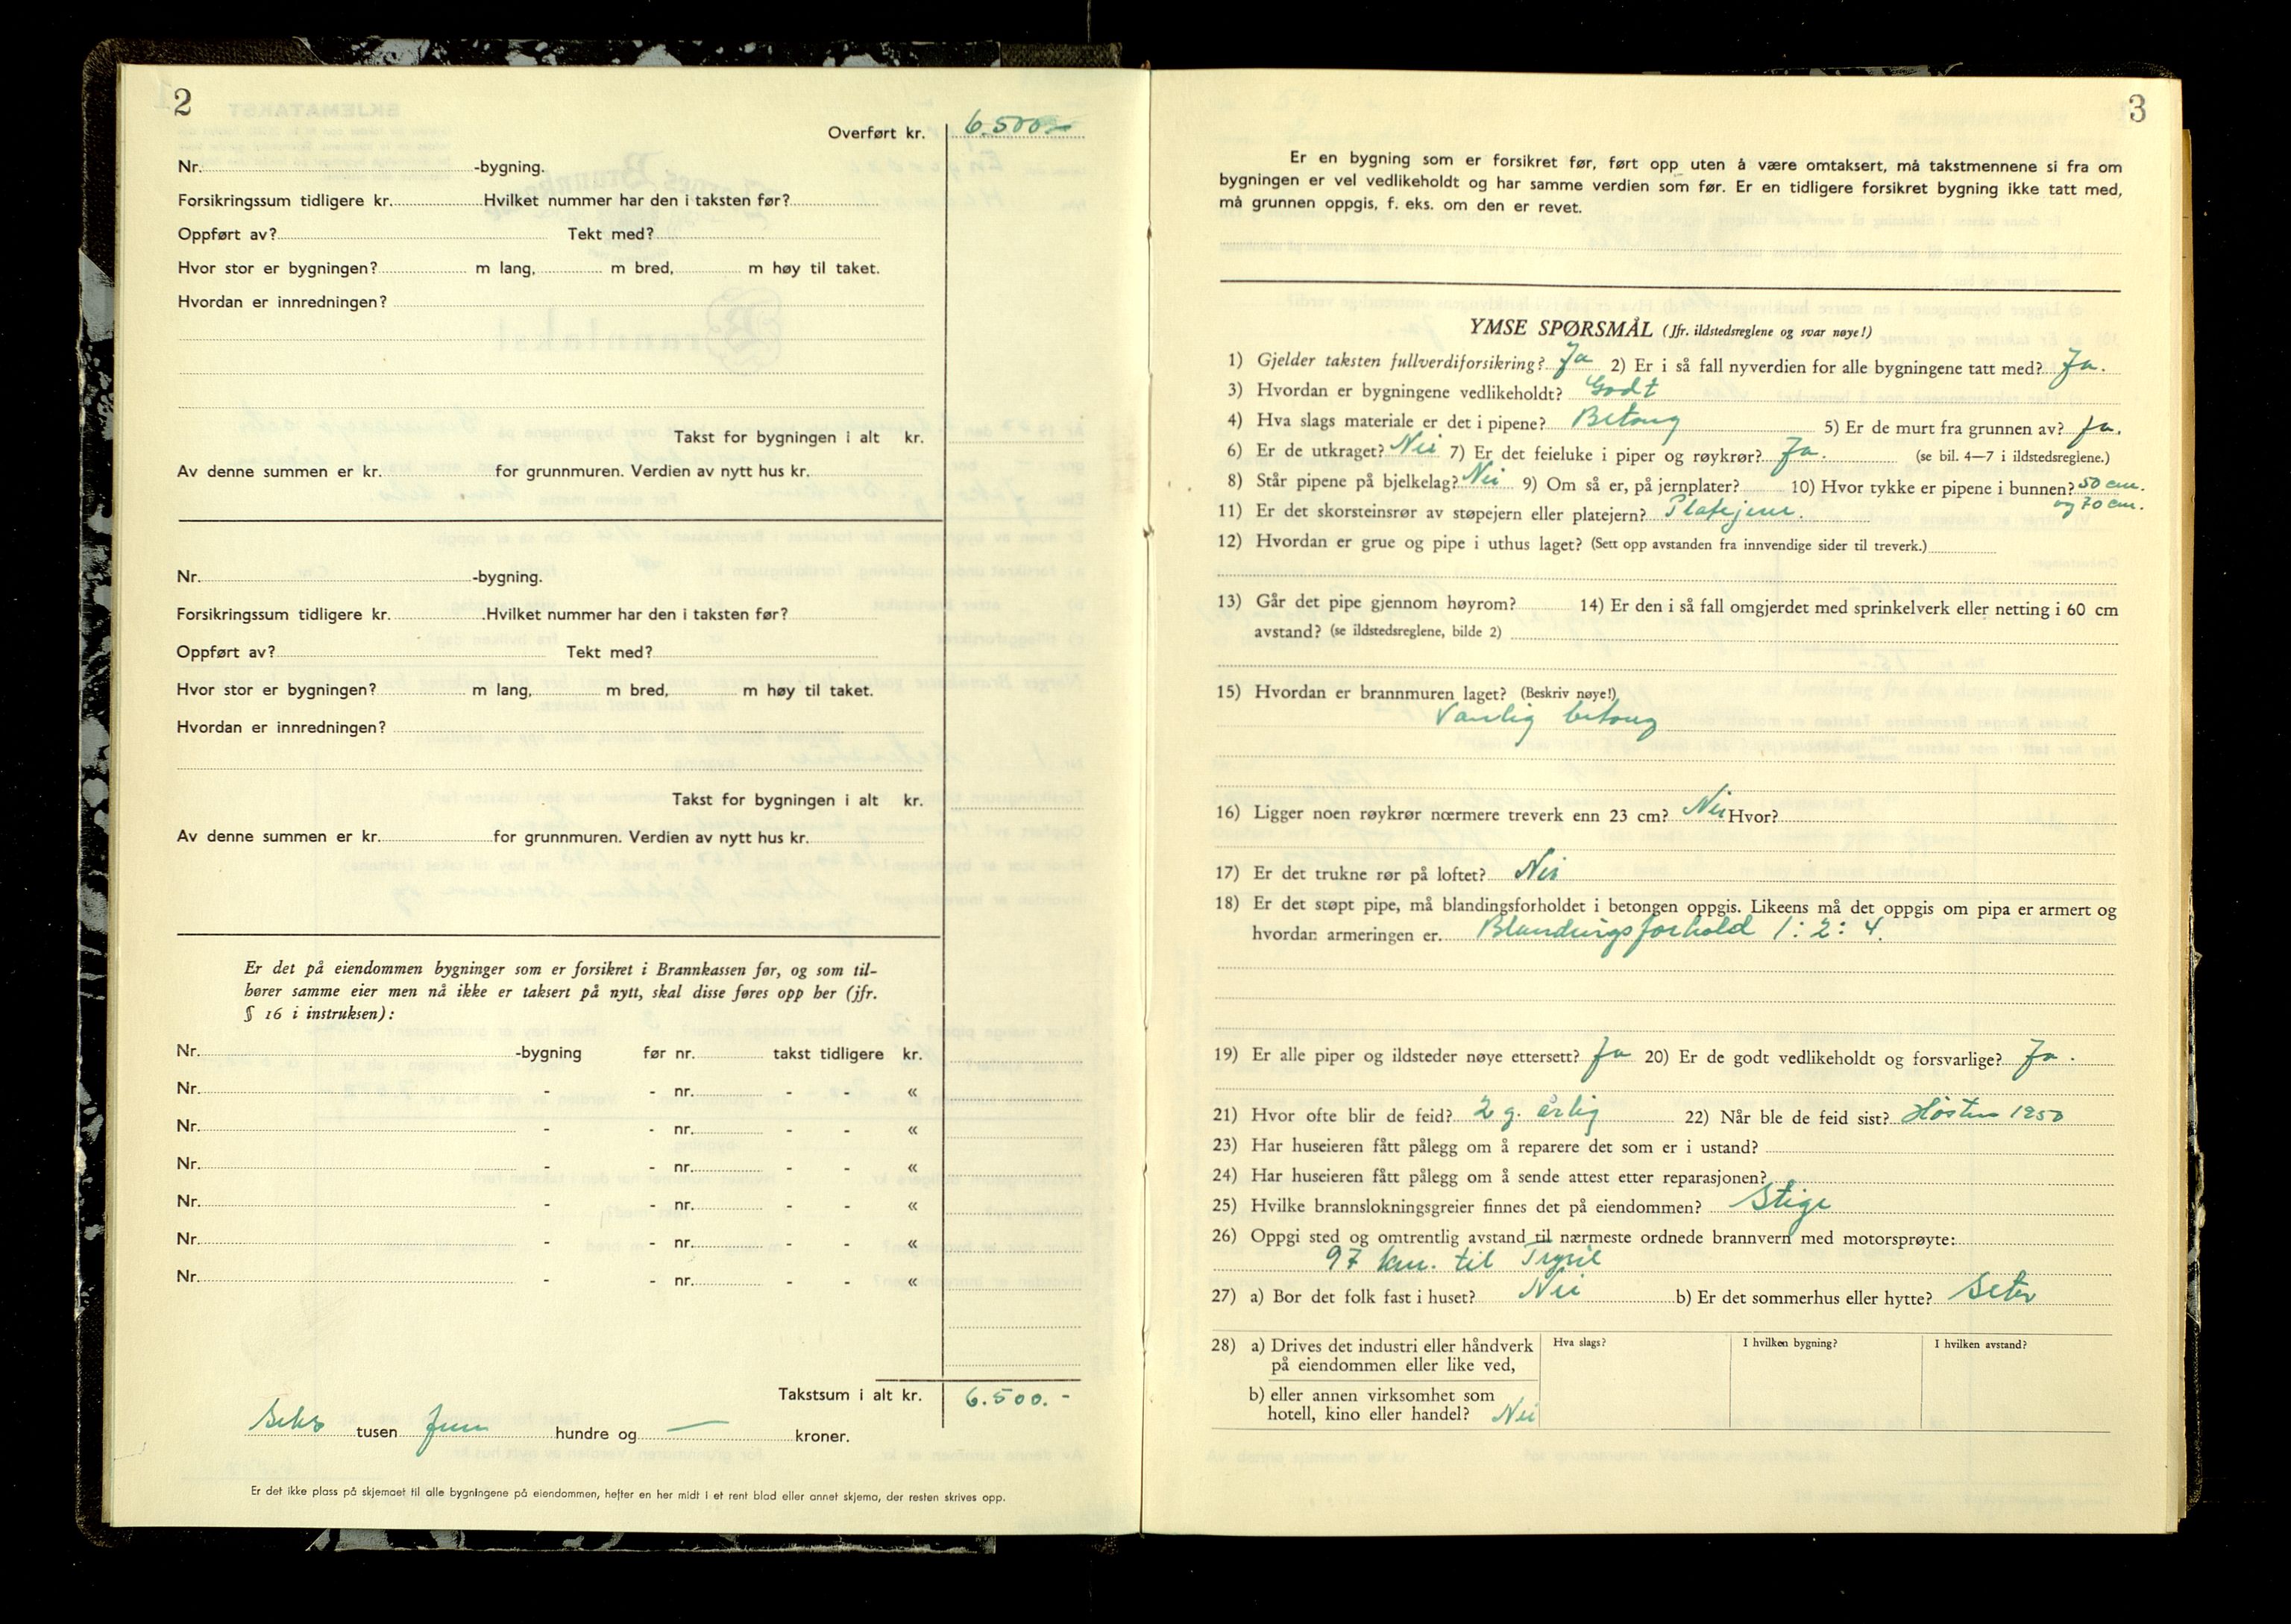 2
Overført kr. 6.500.-
Nr. -bygning.
Forsikringssum tidligere kr. Hvilket nummer har den i taksten før?
Oppført av? Tekt med?
Hvor stor er bygningen? m lang, m bred, m høy til taket.
Hvordan er innredningen?
Takst for bygningen i alt kr.
Av denne summen er kr. for grunnmuren. Verdien av nytt hus kr.
Nr. -bygning.
Forsikringssum tidligere kr. Hvilket nummer har den i taksten før?
Oppført av? Tekt med?
Hvor stor er bygningen? m lang, m bred, m høy til taket.
Hvordan er innredningen?
Takst for bygningen i alt kr.
Av denne summen er kr. for grunnmuren. Verdien av nytt hus kr.
Er det på eiendommen bygninger som er forsikret i Brannkassen før, og som til-
hører samme eier men nå ikke er taksert på nytt, skal disse føres opp her (jfr.
§ 16 i instruksen):
Nr. -bygning før nr. takst tidligere kr.
Nr. - - nr. - - «
Nr. - - nr. - - «
Nr. - - nr. - - «
Nr. - - nr. - - «
Nr. - - nr. - - «
Nr. - - nr. - - «
Takstsum i alt kr. 6.500.-
Seks tusen fem hundre og — kroner.
Er det ikke plass på skjemaet til alle bygningene på eiendommen, hefter en her midt i et rent blad eller annet skjema, der resten skrives opp.
3
Er en bygning som er forsikret før, ført opp uten å være omtaksert, må takstmennene si fra om
bygningen er vel vedlikeholdt og har samme verdien som før. Er en tidligere forsikret bygning ikke tatt med,
må grunnen oppgis, f. eks. om den er revet.
YMSE SPØRSMÅL (Jfr. ildstedsreglene og svar nøye!)
1) Gjelder taksten fullverdiforsikring? Ja 2) Er i så fall nyverdien for alle bygningene tatt med? Ja.
3) Hvordan er bygningene vedlikeholdt? Godt
4) Hva slags materiale er det i pipene? Betong 5) Er de murt fra grunnen av? Ja.
6) Er de utkraget? Nei 7) Er det feieluke i piper og røykrør? Ja. (se bil. 4—7 i ildstedsreglene.)
8) Står pipene på bjelkelag? Nei 9) Om så er, på jernplater? 10) Hvor tykke er pipene i bunnen? 50 cm.
og 70 cm.
11) Er det skorsteinsrør av støpejern eller platejern? Platejern.
12) Hvordan er grue og pipe i uthus laget? (Sett opp avstanden fra innvendige sider til treverk.)
13) Går det pipe gjennom høyrom? 14) Er den i så fall omgjerdet med sprinkelverk eller netting i 60 cm
avstand? (se ildstedsreglene, bilde 2)
15) Hvordan er brannmuren laget? (Beskriv nøye!)
Vanlig betong
16) Ligger noen røykrør nœrmere treverk enn 23 cm? Nei Hvor?
17) Er det trukne rør på loftet? Nei
18) Er det støpt pipe, må blandingsforholdet i betongen oppgis. Likeens må det oppgis om pipa er armert og
hvordan armeringen er. Blandingsforhold 1:2:4.
19) Er alle piper og ildsteder nøye ettersett? Ja 20) Er de godt vedlikeholdt og forsvarlige? Ja.
21) Hvor ofte blir de feid? 2 g. årlig 22) Når ble de feid sist? Høsten 1950
23) Har huseieren fått pålegg om å reparere det som er i ustand?
24) Har huseieren fått pålegg om å sende attest etter reparasjonen?
25) Hvilke brannslokningsgreier finnes det på eiendommen? Stige
26) Oppgi sted og omtrentlig avstand til nærmeste ordnede brannvern med motorsprøyte:
97 km. til Trysil
27) a) Bor det folk fast i huset? Nei b) Er det sommerhus eller hytte? Seter
28) a) Drives det industri eller håndverk Hva slags? I hvilken bygning? I hvilken avstand?
på eiendommen eller like ved,
b) eller annen virksomhet som
hotell, kino eller handel? Nei